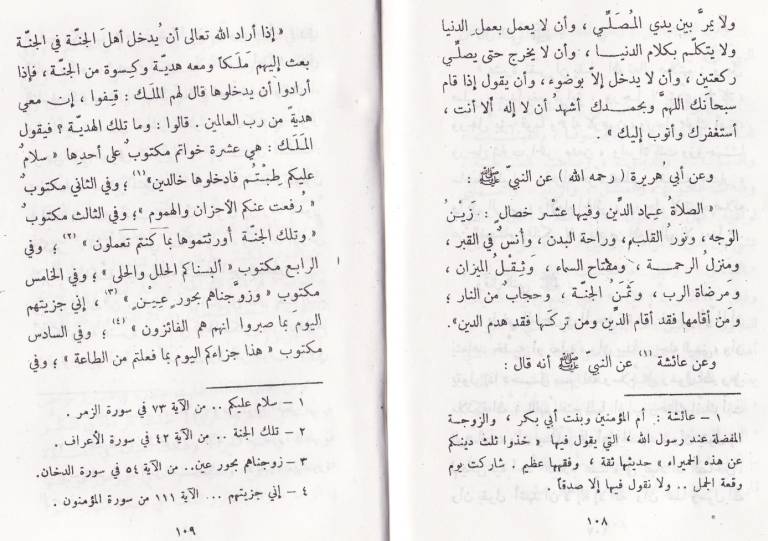 ولا يمرَّ بين يدي المُصَلِّي ، وأن لا يعمل بعمل الدنيا
ولا يتكلّم بكلام الدنيا ، وأن لا يخرج حتى يصلّي
ركعتين ، وأن لا يدخل إلاّ بوضوء ، وأن يقول إذا قام
سبحانك اللهمَّ وبحمدك أشهدُ أن لا إله ألا أنت ،
أستغفرك وأتوب إليك » .
وعن أبي هُريرة ( رحمه الله ) عن النبيّ ﷺ :
« الصلاةُ عِماد الدِّين وفيها عَشْر خصال : زَيْنُ
الوَجه ، ونُور القلب ، وراحة البدن ، وأنسٌ في القبر ،
ومنزلُ الرحمة ، ومفتاح السماء ، وثِقْلُ الميزان ،
ومَرضاة الرب ، وثَمَنُ الجنّة ، وحجابٌ من النار ؛
ومن أقامها فقد أقام الدِّين ومن تركها فقد هدم الدين» .
وعن عائشة (١) عن النبيّ ﷺ أنه قال :
١ – عائشة : أم المؤمنين وبنت أبي بكر ، والزوجة
المفضلة عند رسول الله ، التي يقول فيها « خذوا ثلث دينكم
عن هذه الحميراء » حديثها ثقة ، وفقهها عظيم . شاركت يوم
وقعة الجمل .. ولا نقول فيها إلا صدقاً .
١٠٨
« إذا أراد الله تعالى أن يُدخل أهلَ الجنّة في الجنّة
بعث إليهم مَلَكاً ومعه هديّة وكِسوة من الجنّة ، فإذا
أرادوا أن يدخلوها قال لهم الملَك : قِيفوا ، إن معي
هديةً من رب العالمين . قالوا : وما تلك الهديّة ؟ فيقول
المَلَك : هي عشرة خواتم مكتوبٌ على أحدِها « سلامٌ
عليكم طِبْتُم فادخلوها خالدين»(١) ؛ وفي الثاني مكتوبٌ
« رُفعت عنكم الأحزان والهموم » ؛ وفي الثالث مكتوبٌ
« وتلك الجنّة أورثتموها بما كنتم تَعملون » (٢) ؛ وفي
الرابع مكتوب « ألبسناكم الحلل والحلى » ؛ وفي الخامس
مكتوب « وزوَّجناهم بحورٍ عِيْن » (٣) ، إني جزيتهم
اليومَ بما صبروا انهم هم الفائزون » (٤) ؛ وفي السادس
مكتوب « هذا جزاءكم اليوم بما فعلتم من الطاعة » ؛ وفي
١ – سلام عليكم .. من الآية ٧٣ في سورة الزمر .
٢ – تلك الجنة .. من الآية ٤٢ في سورة الأعراف .
٣ – زوجناهم بحور عين.. من الآية ٥٤ في سورة الدخان.
٤ – إني جزيتهم ... الآية ١١١ من سورة المؤمنون .
١٠٩